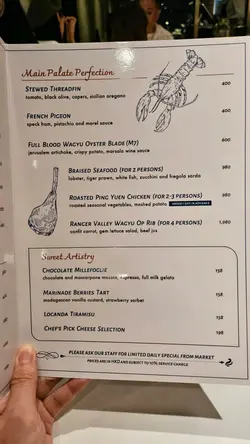 Main Palate Perfection
STEWED THREADFIN 400
tomato, black olive, capers, sicilian oregano
FRENCH PIGEON 400
speck ham, pistachio and morel sauce
FULL BLOOD WAGYU OYSTER BLADE (M7) 600
jerusalem artichoke, crispy potato, marsala wine sauce
BRAISED SEAFOOD (FOR 2 PERSONS) 980
lobster, tiger prawn, white fish, zucchini and fregola sarda
ROASTED PING YUEN CHICKEN (FOR 2-3 PERSONS) 980
roasted seasonal vegetables, mashed potato
RANGER VALLEY WAGYU OP RIB (FOR 4 PERSONS) 1,980
confit carrot, gem lettuce salad, beef jus
Sweet Artistry
CHOCOLATE MILLEFOGLIE 158
chocolate and mascarpone mousse, espresso, full milk gelato
MARINADE BERRIES TART 158
madagascar vanilla custard, strawberry sorbet
LOCANDA TIRAMISU 158
CHEF'S PICK CHEESE SELECTION 198
PLEASE ASK OUR STAFF FOR LIMITED DAILY SPECIAL FROM MARKET
PRICES ARE IN HKD AND SUBJECT TO 10% SERVICE CHARGE